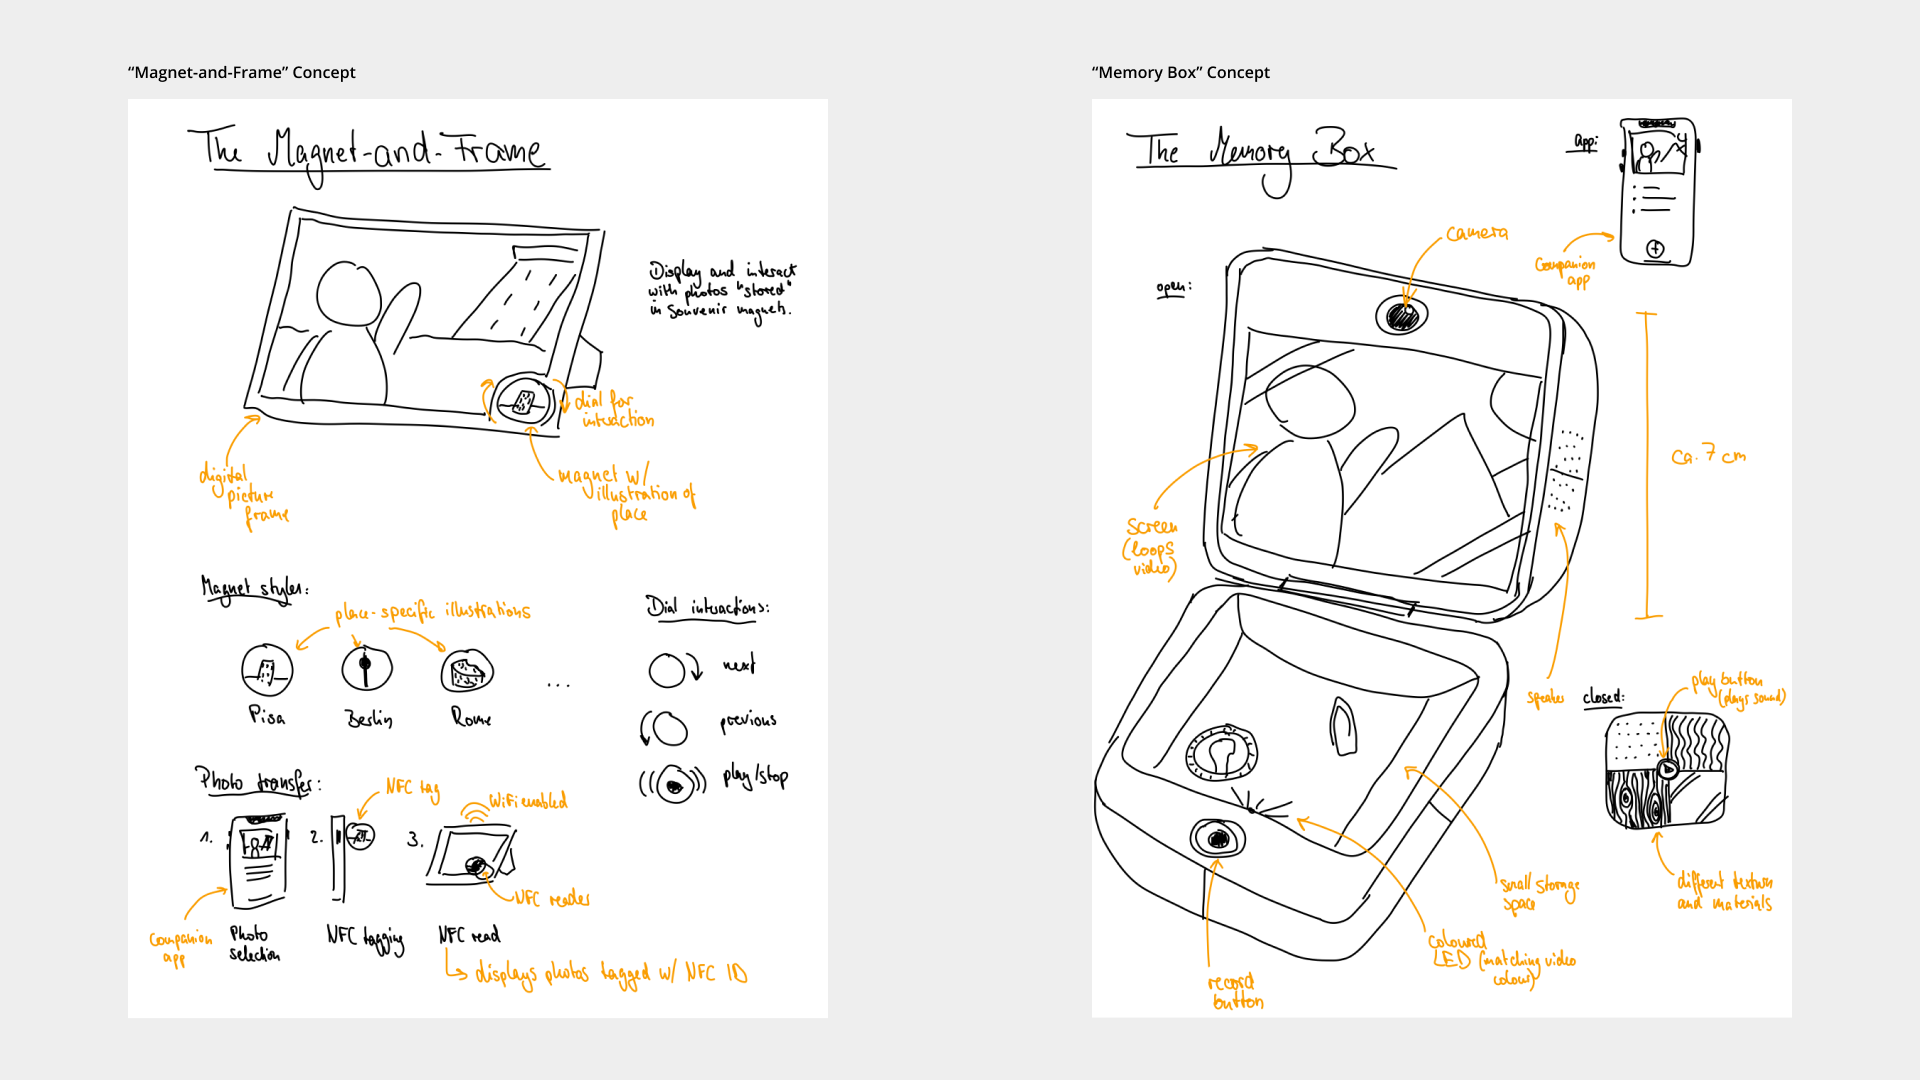 “Magnet-and-Frame” Concept
The Magnet-and-Frame
Display and interact
with photos "stored"
in souvenir magnets.
dial for
interaction
digital
picture
frame
magnet w/
illustration of
place
Magnet styles:
place-specific illustrations
Pisa
Berlin
Rome
...
Dial interactions:
next
previous
play/stop
Photo transfer:
NFC tag
WiFi enabled
1.
2.
3.
NFC reader
Companion
app
Photo
selection
NFC tagging
NFC read
displays photos tagged w/ NFC ID
“Memory Box” Concept
The Memory Box
app:
Companion
app
camera
open:
ca. 7 cm
screen
(loops
video)
speaker
closed:
play button
(plays sound)
different textures
and materials
small storage
space
coloured
LED (matching video
colour)
record
button